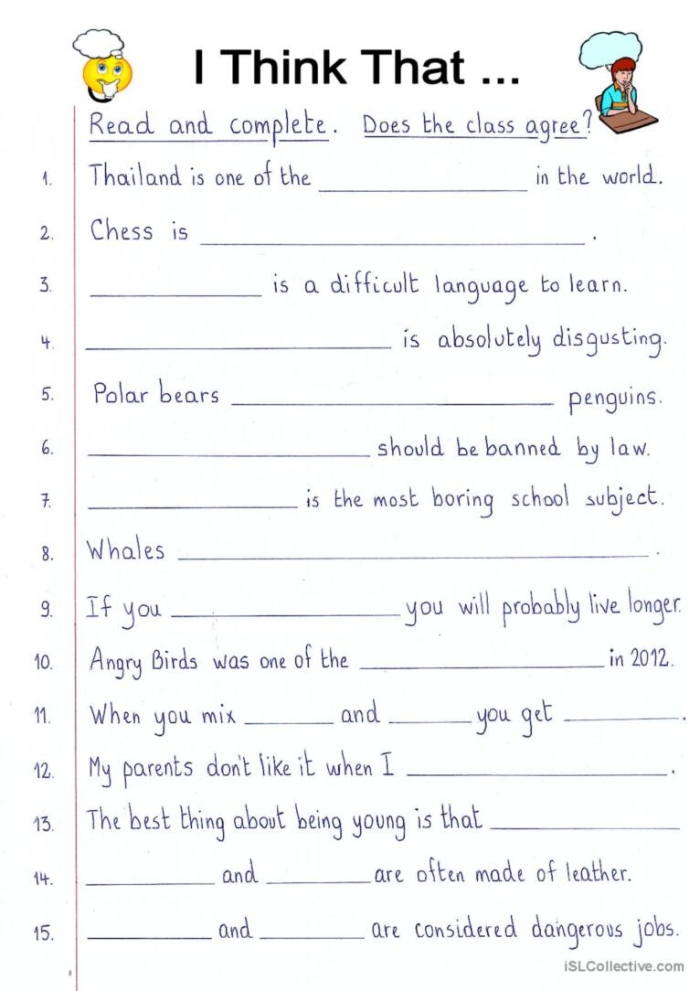 I Think That ...
Read and complete. Does the class agree?
1. Thailand is one of the ____________ in the world.
2. Chess is ____________ .
3. ____________ is a difficult language to learn.
4. ____________ is absolutely disgusting.
5. Polar bears ____________ penguins.
6. ____________ should be banned by law.
7. ____________ is the most boring school subject.
8. Whales ____________ .
9. If you ____________ you will probably live longer.
10. Angry Birds was one of the ____________ in 2012.
11. When you mix ______ and ______ you get ________ .
12. My parents don't like it when I ____________ .
13. The best thing about being young is that ____________
14. ________ and ________ are often made of leather.
15. ________ and ________ are considered dangerous jobs.
iSLCollective.com